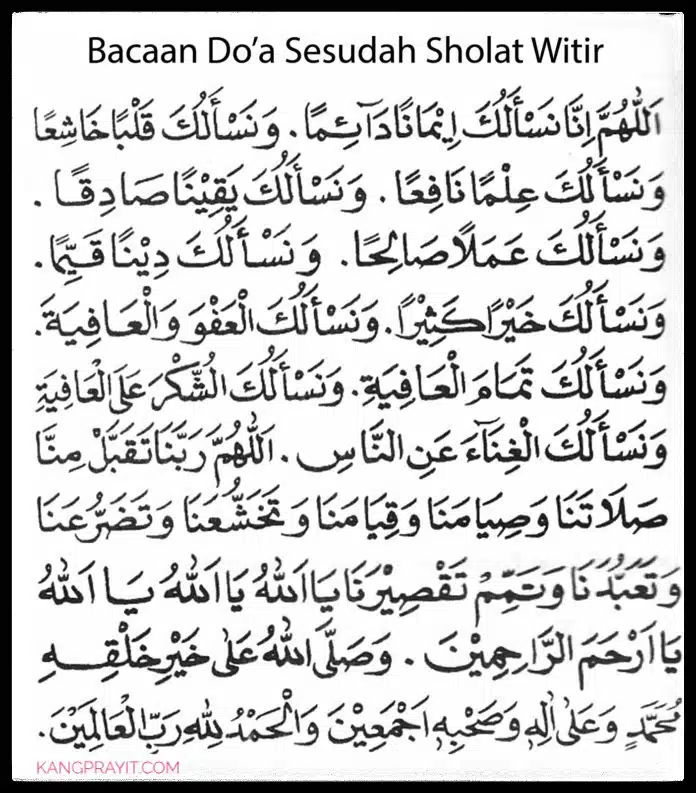 Bacaan Do'a Sesudah Sholat Witir
اَللّٰهُمَّ اِنَّا نَسْأَلُكَ اِيْمَانًا دَآئِمًا. وَنَسْأَلُكَ قَلْبًا خَاشِعًا
وَنَسْأَلُكَ عِلْمًا نَافِعًا. وَنَسْأَلُكَ يَقِيْنًا صَادِقًا.
وَنَسْأَلُكَ عَمَلًا صَالِحًا. وَنَسْأَلُكَ دِيْنًا قَيِّمًا.
وَنَسْأَلُكَ خَيْرًا كَثِيْرًا. وَنَسْأَلُكَ الْعَفْوَ وَالْعَافِيَةَ.
وَنَسْأَلُكَ تَمَامَ الْعَافِيَةِ. وَنَسْأَلُكَ الشُّكْرَ عَلَى الْعَافِيَةِ
وَنَسْأَلُكَ الْغِنَآءَ عَنِ النَّاسِ. اَللّٰهُمَّ رَبَّنَا تَقَبَّلْ مِنَّا
صَلَاتَنَا وَصِيَامَنَا وَقِيَامَنَا وَتَخَشُّعَنَا وَتَضَرُّعَنَا
وَتَعَبُّدَنَا وَتَمِّمْ تَقْصِيْرَنَا يَا اَللّٰهُ يَا اَللّٰهُ يَا اَللّٰهُ
يَا اَرْحَمَ الرَّاحِمِيْنَ. وَصَلَّى اللّٰهُ عَلٰى خَيْرِ خَلْقِهِ
مُحَمَّدٍ وَعَلٰى اٰلِهِ وَصَحْبِهِ اَجْمَعِيْنَ وَالْحَمْدُ لِلّٰهِ رَبِّ الْعَالَمِيْنَ.
KANGPRAYIT.COM